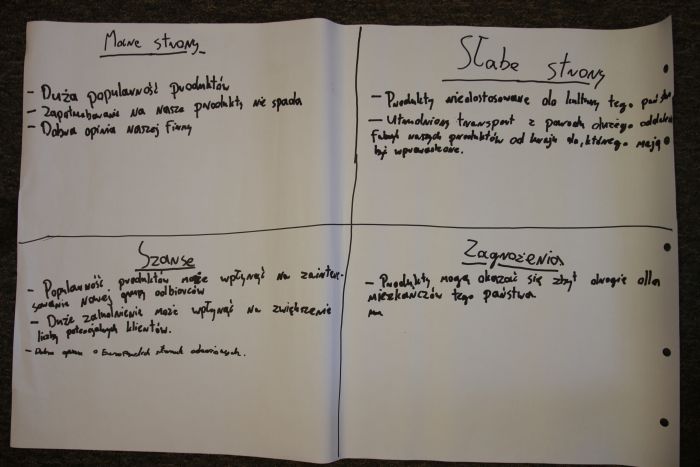 Mocne strony
- Duża popularność produktów
- Zapotrzebowanie na nasze produkty nie spada
- Dobra opinia naszej firmy
Słabe strony
- Produkty niedostosowane do kultury tego
- Utrudniony transport z powodu dużego
fabryk naszych produktów od kraju do, którego mają
być wprowadzone.
Szanse
- Popularność produktów może wpłynąć na zaintere-
sowanie nowej grupy odbiorców
- Duże zaludnienie może wpłynąć na zwiększenie
liczby potencjalnych klientów.
- Dobra o
Zagrożenia
- Produkty mogą okazać się zbyt drogie dla
mieszkańców tego państwa